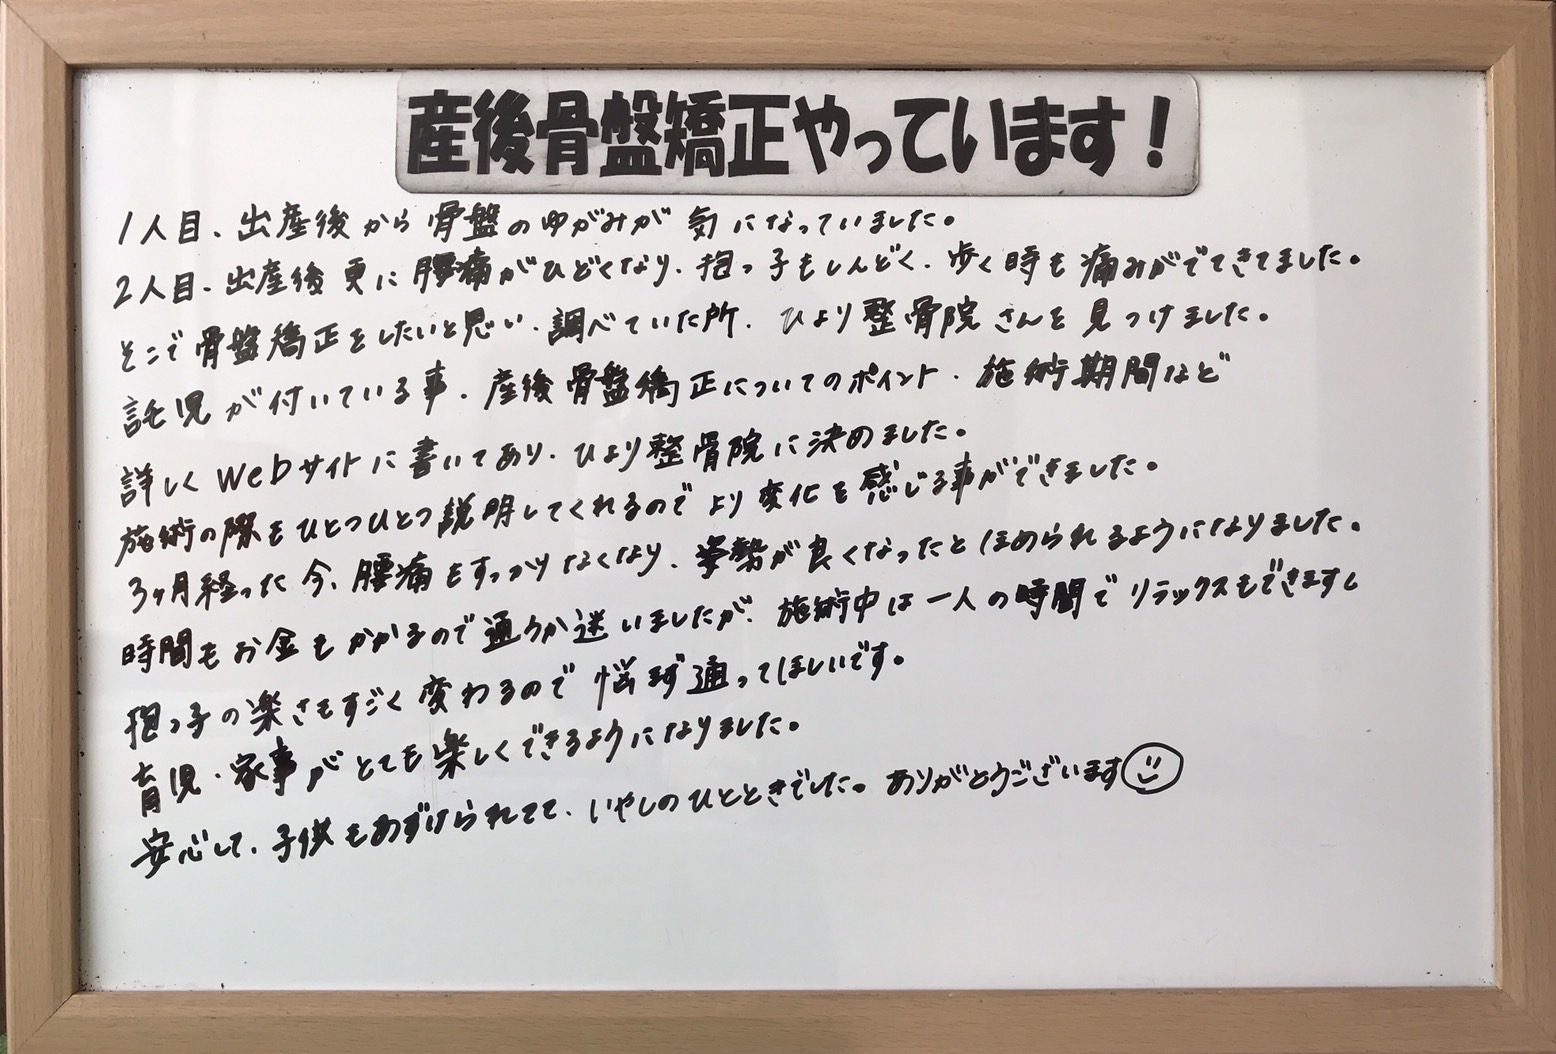 産後骨盤矯正やっています！
1人目、出産後から骨盤のゆがみが気になっていました。
2人目、出産後更に腰痛がひどくなり、抱っ子もしんどく、歩く時も痛みがでてきてました。
そこで骨盤矯正をしたいと思い、調べていた所、ひより整骨院さんを見つけました。
託児が付いている事、産後骨盤矯正についてのポイント、施術期間など
詳しくwebサイトに書いてあり、ひより整骨院に決めました。
施術の際もひとつひとつ説明してくれるのでより変化を感じる事ができました。
3ヶ月経った今、腰痛もすっかりなくなり、姿勢が良くなったとほめられるようになりました。
時間もお金もかかるので通うか迷いましたが、施術中は一人の時間でリラックスもできますし
抱っ子の楽さもすごく変わるので悩まず通ってほしいです。
育児・家事がとても楽しくできるようになりました。
安心して、子供もあずけられてて、いやしのひとときでした。ありがとうございます